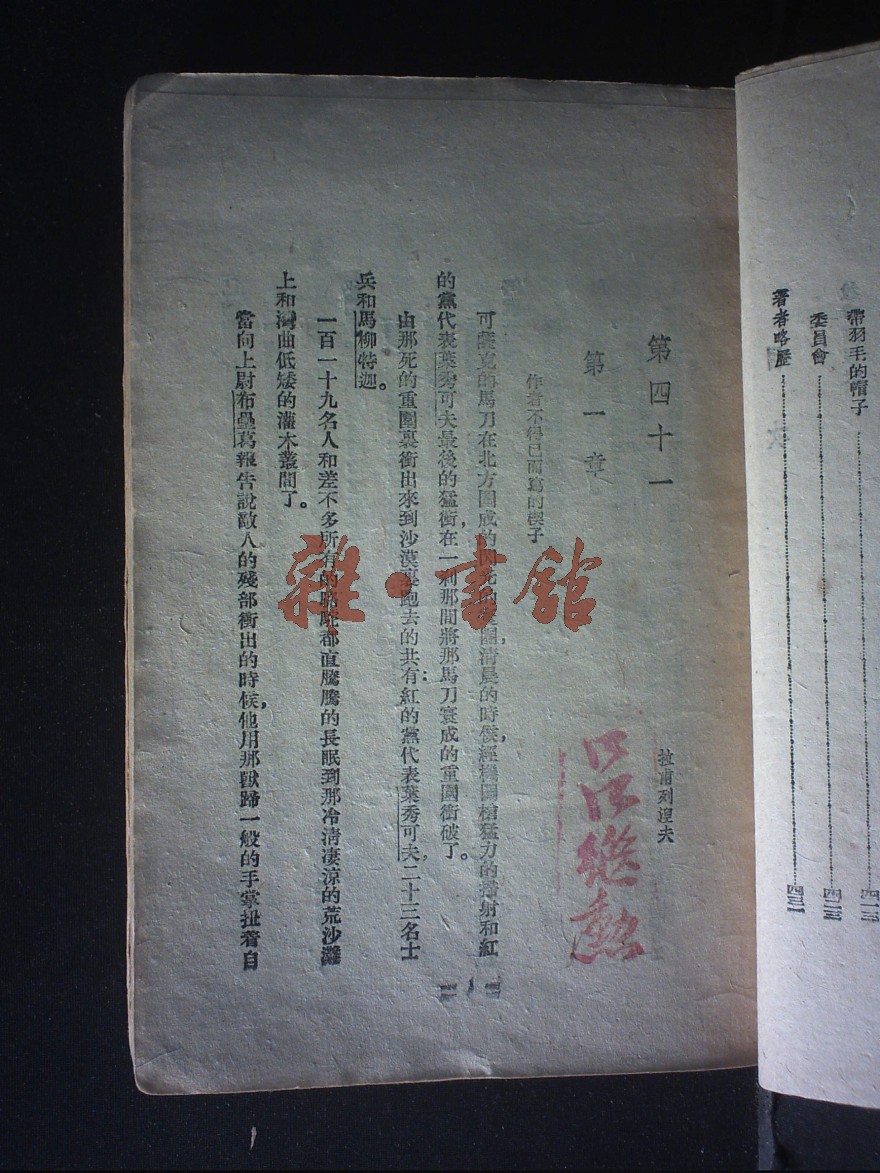 帶羽毛的帽子
四一三
委員會
四二三
署者略歷
四三一
第四十一
拉甫列涅夫
第一章
作者不得已而寫的楔子
可薩克的馬刀在北方圍成的閃光的重圍,清晨的時候,經機關槍猛力的掃射和紅
的黨代表葉秀可夫最後的猛衝,在一剎那間將那馬刀寰成的重圍衝破了。
由那死的重圍裏衝出來到沙漠裏跑去的共有:紅的黨代表葉秀可夫,二十三名士
兵和馬柳特迦。
一百一十九名人和差不多所有的駱駝都直騰騰的長眠到那冷清凄涼的荒沙灘
上和灣曲低矮的灌木叢間了。
當向上尉布壘葛報告說敵人的殘部衝出的時候,他用那獸蹄一般的手掌扯着自
雜·書館
繼勳